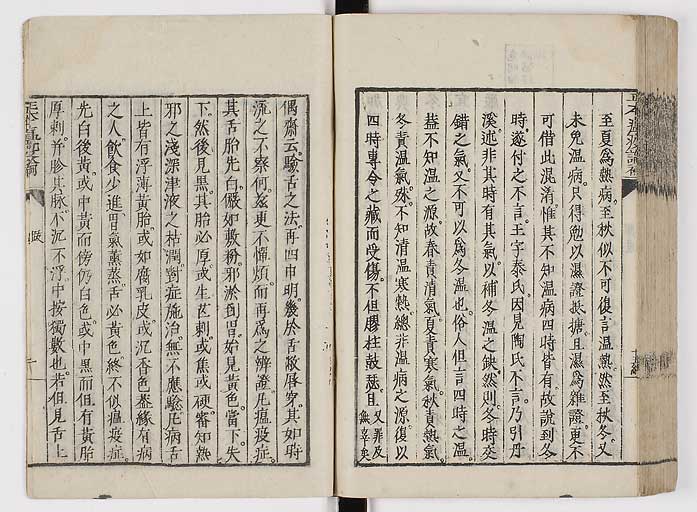 至夏爲熱病至秋似不可復言溫熱然至秋冬又
未免溫病只得勉以濕證抵搪且濕爲雜證更不
可借此混淆惟其不知溫病四時皆有故說到冬
時遂付之不言王宇泰氏因見陶氏不言乃引丹
溪述非其時有其氣以補冬溫之缺然則冬時交
錯之氣又不可以爲冬溫也俗人但言四時之溫
蓋不知溫之源故春責清氣夏責寒氣秋責熱氣
冬責溫氣殊不知清溫寒熱總非溫病之源復以
四時專令之藏而受傷不但膠柱鼓瑟且又罪及
無辜矣
偶齋云驗舌之法再四申明幾於舌敝唇穿其如時
流之不察何茲更不憚煩而再爲之辨證凡瘟疫症
其舌胎先白儼如敷粉邪淤到胃始見黃色當下失
下然後見黑其胎必厚或生芒刺或焦或硬審知熱
邪之淺深津液之枯潤對症施治無不應驗尼病舌
上皆有浮薄黃胎或如腐乳皮或沉香色蓋緣有病
之人飲食少進胃氣薰蒸舌必黃色終不似瘟疫症
先白後黃或中黃而傍仍白色或中黑而但有黃胎
厚刺并胗其脉不沉不浮中按獨數也若但見舌上